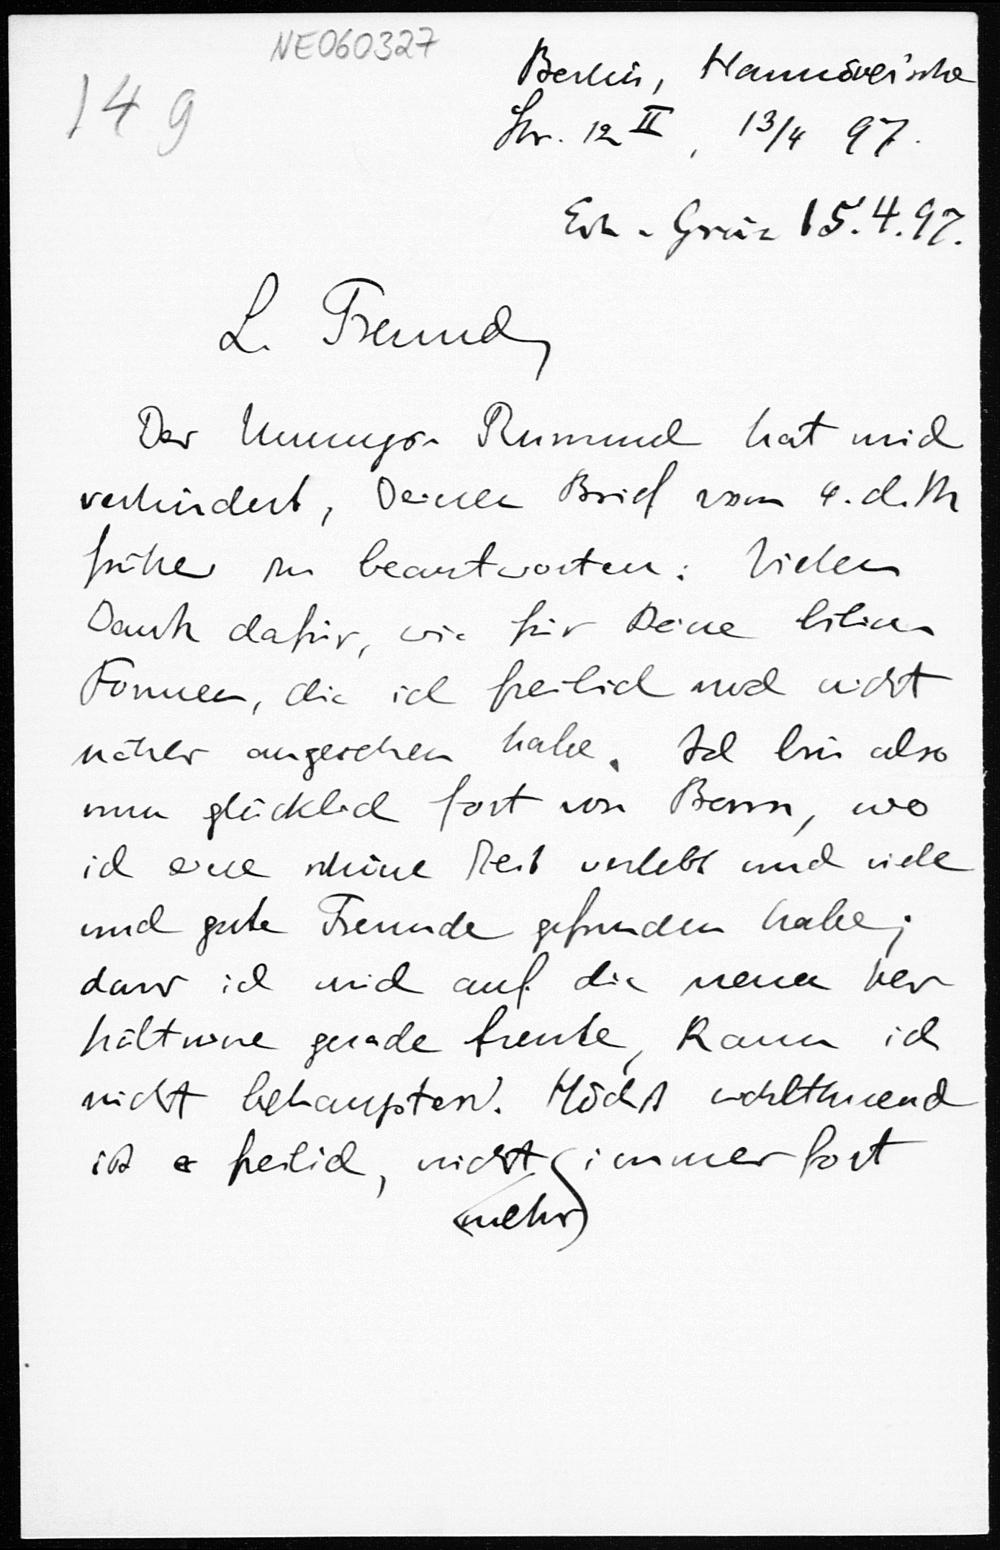 NE060327
14 g
Berlin, Hannöverische
Str. 12 II, 13/4 97.
Erh. Graz 15.4.97.
L. Freund,
Der Umzugs-Rummel hat mich
verhindert, Deinen Brief vom 4. d. M
früher zu beantworten: Vielen
Dank dafür, wie für Deine
Formen, die ich freilich noch nicht
näher angesehen habe. Ich bin also
nun glücklich fort von Bonn, wo
ich eine schöne Zeit verlebt und viele
und gute Freunde gefunden habe;
dass ich mich auf die neuen Ver
hältnisse gerade freute, kann ich
nicht behaupten. Höchst wohlthuend
ist es freilich, nicht immerfort
(mehr)